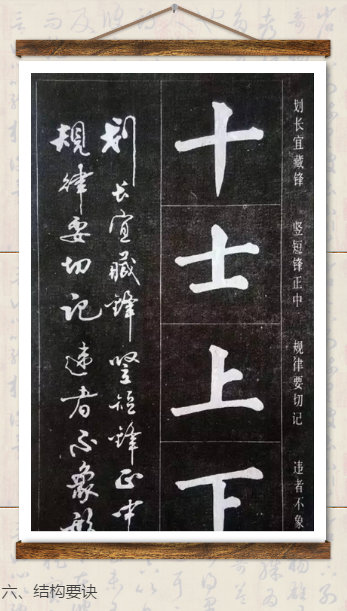 划长宜藏锋 竖短锋正中 规律要切记 违者不象
十士上下
划长宜藏锋竖短锋正中
规律要切记违者不象形
六、结构要诀